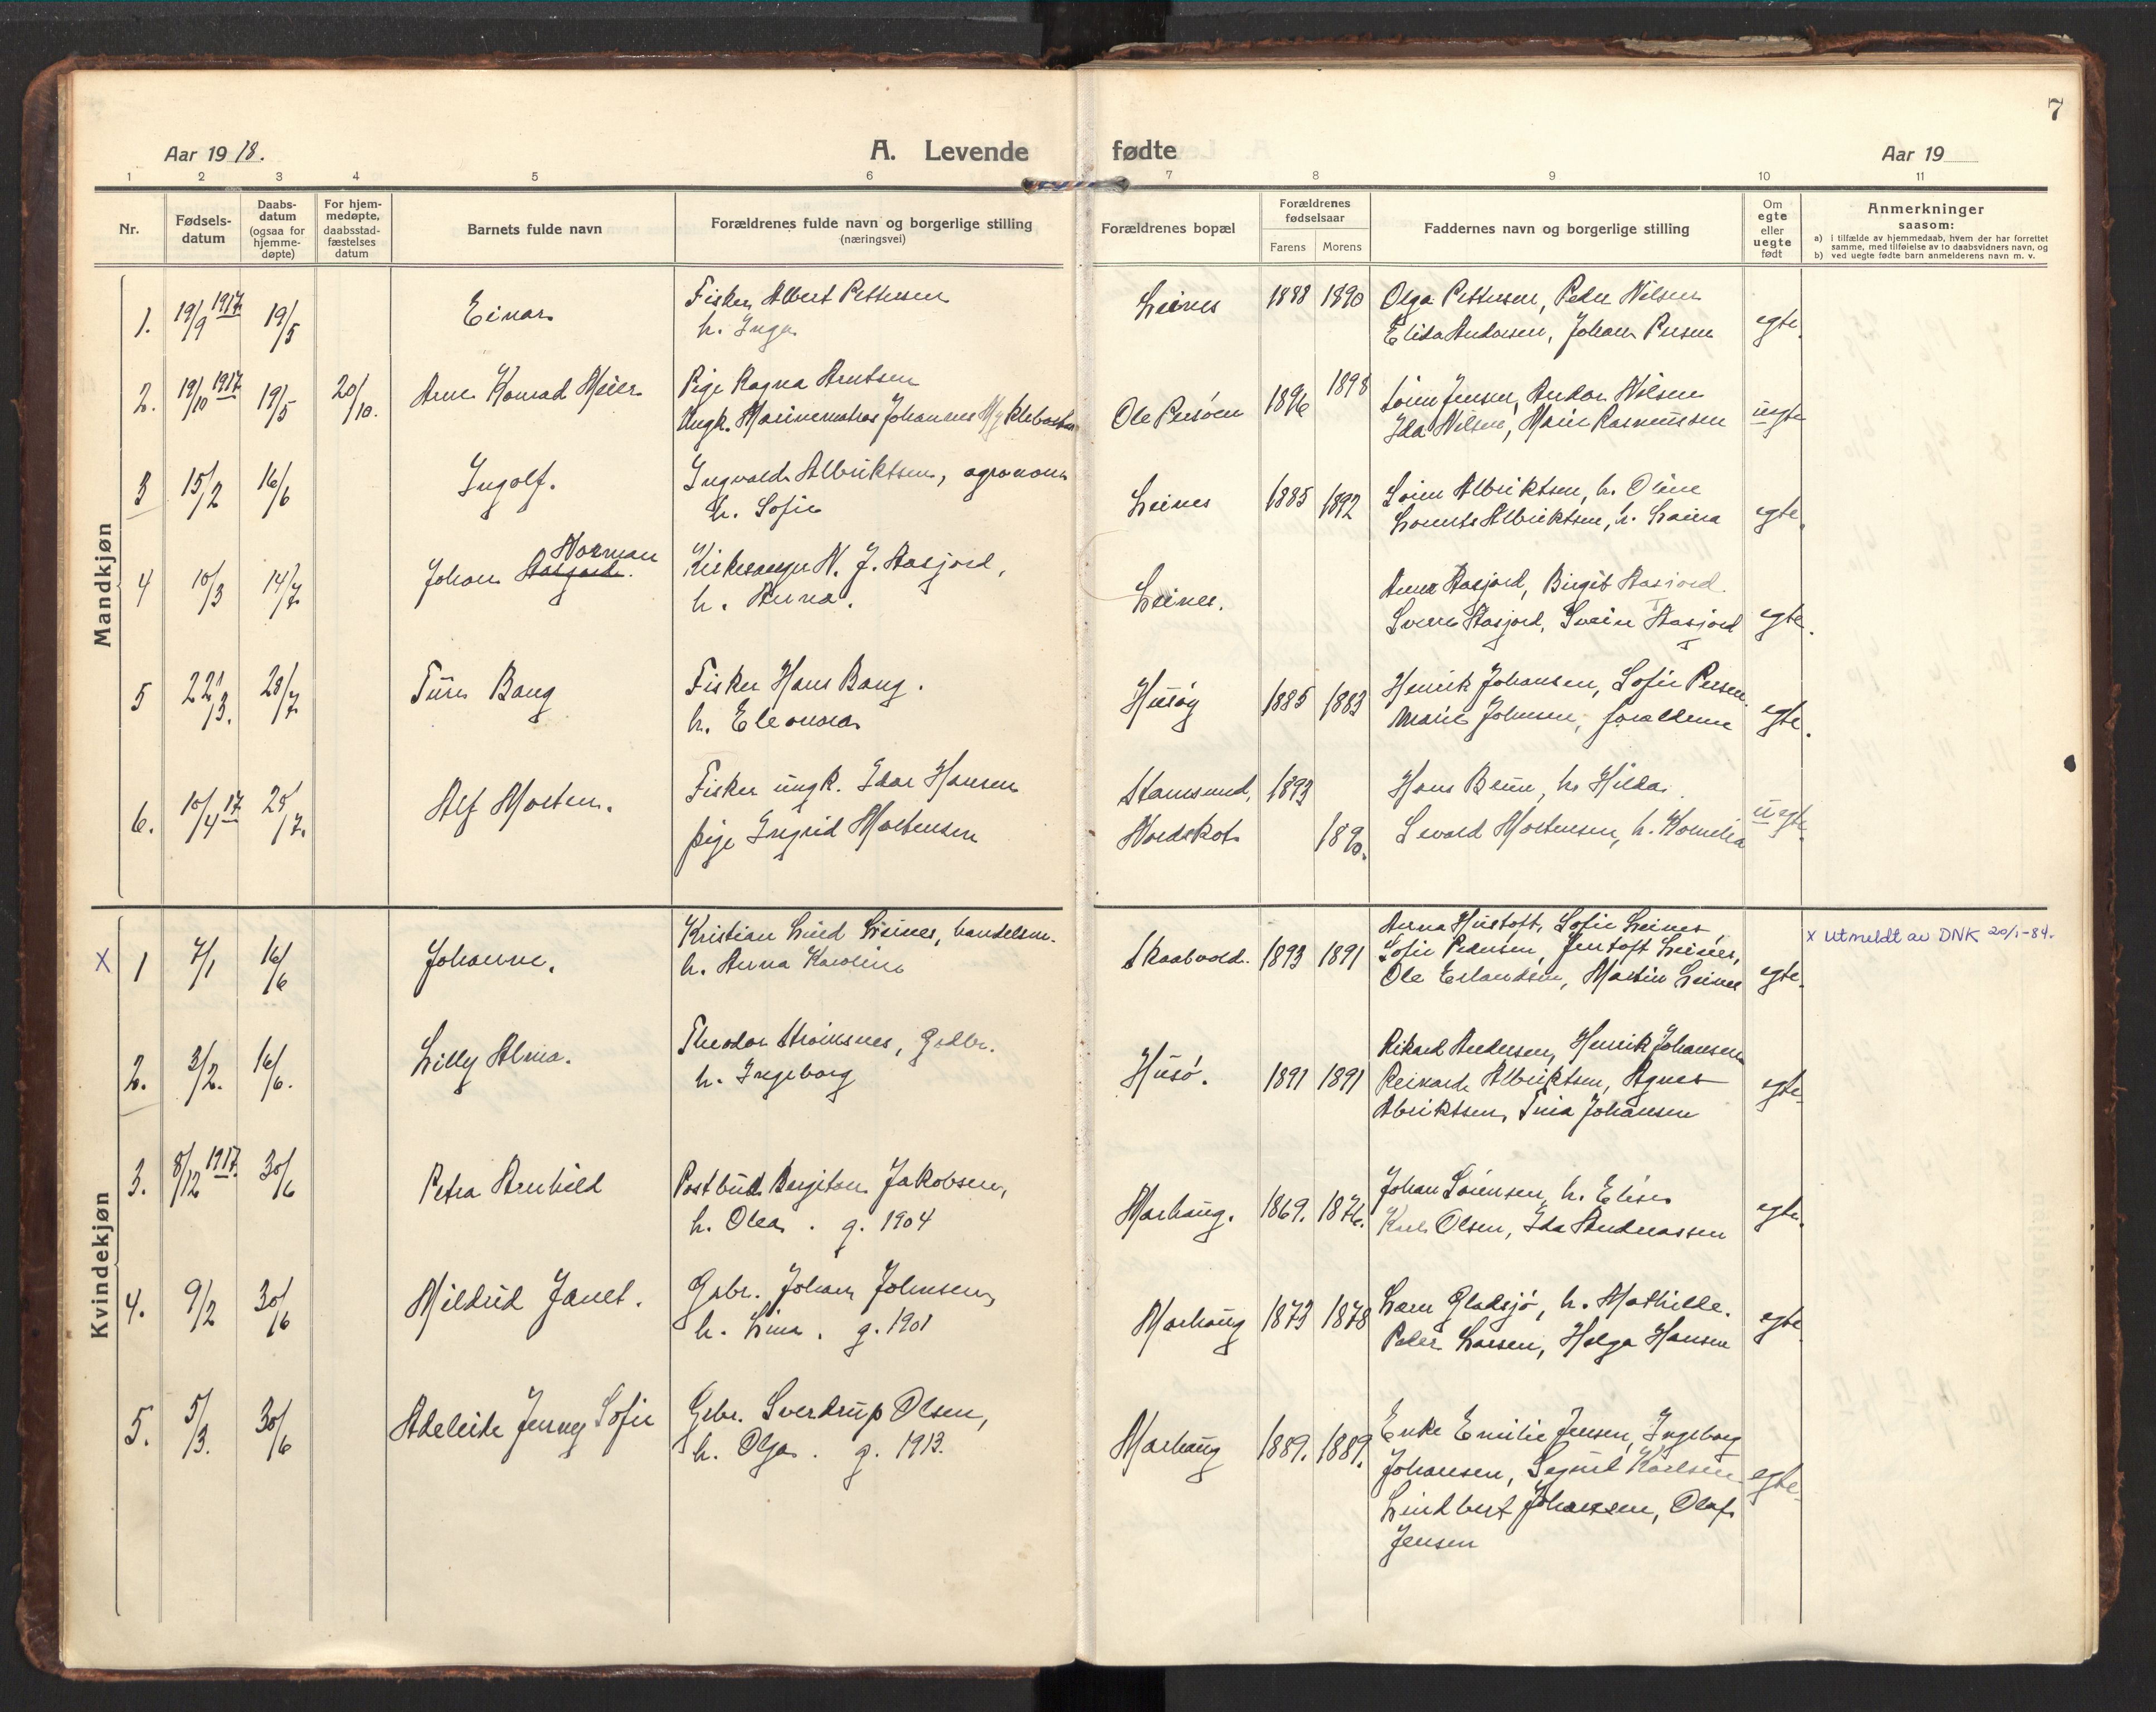 7
Aar 19 18.
A. Levende
fødte
Aar 19
1 2 3 4 5 6 7 8 9 10 11
Nr.
Fødsels-
datum
Daabs-
datum
(ogsaa for
hjemme-
døpte)
For hjem-
medøpte,
daabsstad-
fæstelses
datum
Barnets fulde navn
Forældrenes fulde navn og borgerlige stilling
(næringsvei)
Forældrenes bopæl
Forældrenes
fødselsaar
Farens Morens
Faddernes navn og borgerlige stilling
Om
egte
eller
uegte
født
Anmerkninger
saasom:
a) i tilfælde av hjemmedaab, hvem der har forrettet
samme, med tilføielse av to daabsvidners navn, og
b) ved uegte fødte barn anmelderens navn m. v.
Mandkjøn
1. 19/9 1917 19/5 Einar Fisker Albert Pettersen Leines 1888 1890 Olga Pettersen, Peder Nilsen
h. Inga Elida Andersen, Johan Persen egte.
2. 19/10 1917 19/5 20/10. Arne Konrad Meier Pige Ragna Arntsen Ole Persøen 1896 1898 Søren Jensen, Andor Nilsen
Ungk. Marinematros Johannes Myklebostad Ida Nilsen, Marie Rasmussen uegte
3 15/2 16/6 Ingolf. Ingvald Albriktsen, agronom Leines 1885 1892 Søren Albriktsen, h. Oline
h. Sofie Lorents Albriktsen, h. Laura egte.
4 10/3 14/7 Johan Aasjord. Norman Kirkesanger N. J. Aasjord, Leines. Anna Aasjord, Birgit Aasjord
h. Anna. Sverre Aasjord, Svein Aasjord egte.
5 22/3. 28/7 Ture Bang Fisker Hans Bang. Husøy 1885 1883 Henrik Johansen, Sofie Persen
h. Eleonora Marie Johnsen, forældrene egte.
6. 10/4 17 28/7. Alf Morten. Fisker ungk. Idar Hansen Stamsund, 1893 Hans Breun, h. Hilda.
pige Ingrid Mortensen Nordskot 1890. Sevald Mortensen, h. Kornelia uegte.
Kvindekjøn
X 1 7/1 16/6 Johanne. Kristian Lind Leines, handelsm. Skaalvold. 1893 1891 Anna Hustoft, Sofie Leines
h. Anna Karoline Sofie Pedersen, Jentoft Leines,
Ole Erlandsen, Martin Leines egte. x Utmeldt av DNK 20/1-84.
2. 3/2. 16/6. Lilly Alma. Theodor Strømsnes, Grdbr. Husø. 1891 1891 Rikard Andersen, Henrik Johansen
h. Ingeborg Reinard Albriktsen, Agnes
Albriktsen, Tina Johansen egte.
3. 8/12 1917. 30/6 Petra Arnhild Postbud Bergiton Jakobsen, Marhaug. 1869. 1876. Johan Sørensen, h. Elise
h. Olea. g. 1904 Karl Olsen, Ida Andreassen egte.
4. 9/2 30/6 Mildrid Janet. Gsbr. Johan Johnsen, Marhaug 1873 1878 Lars Gladsjø, h. Mathilde.
h. Lina. g. 1901 Peder Larsen, Helga Hansen egte
5. 5/3. 30/6 Adeleide Jenny Sofie Gsbr. Sverdrup Olsen, Marhaug 1889. 1889. Enke Emilie Jensen, Ingeborg
h. Olga. g. 1913. Johansen, Sigurd Karlsen
Lindbert Johansen, Olaf
Jensen egte.